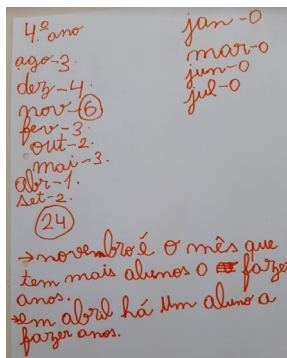 4.º ano
ago-3.
dez-4.
nov-6
fev-3.
out-2.
mai-3.
abr-1.
set-2.
24
jan-0
mar-0
jun-0
jul-0
→novembro é o mês que
tem mais alunos o fazer
anos.
→em abril há um aluno a
fazer anos.